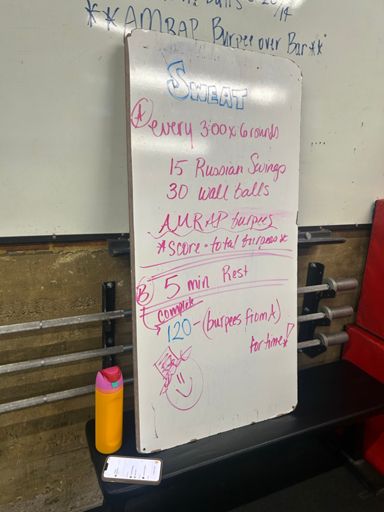 **AMRAP Burpee over Bar**
SWEAT
A every 3:00 x 6 rounds
15 Russian Swings
30 wall balls
AMRAP burpees
*score = total burpees*
B 5 min Rest
complete
120 - (burpees from A)
for time!